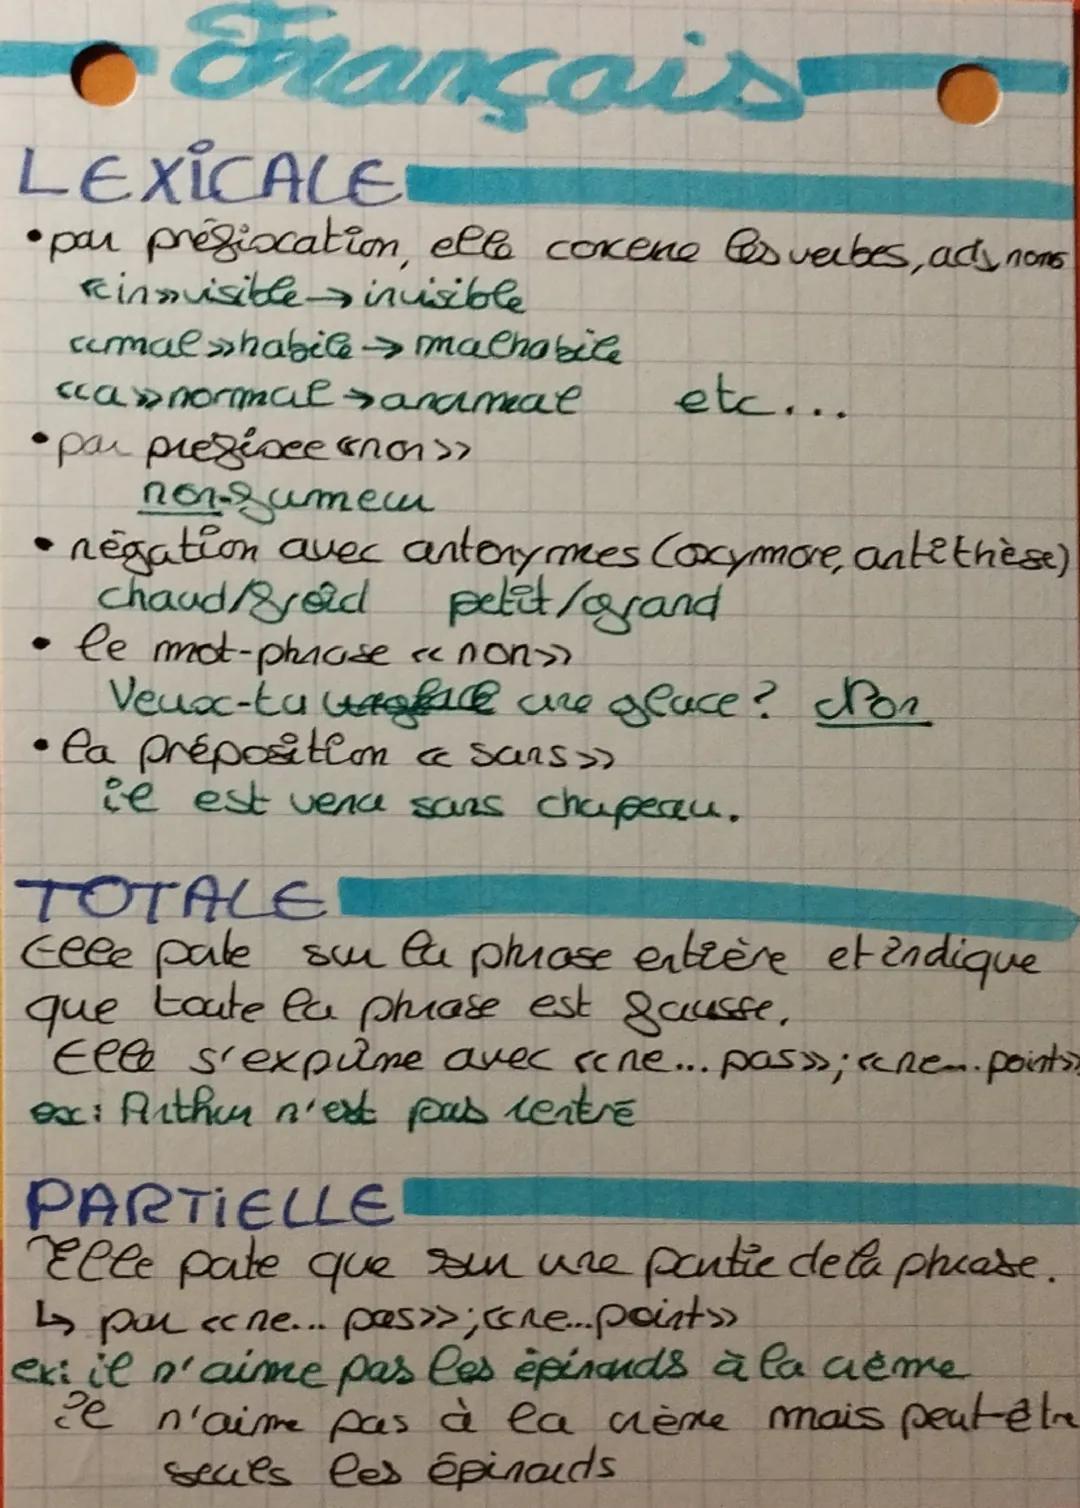 Français
LEXICALE
• par préfixation, elle concene les verbes, adj, noms
«in»visible → invisible
«mal» habile → malhabile
«a» normal → anormal etc...
• par préfixe «non»
non-fumeur
• négation avec antonymes (oxymore, antithèse)
chaud/froid petit/grand
• le mot-phrase «non»
Veux-tu une glace? Non
• la préposition «sans»
il est venu sans chapeau.
TOTALE
Elle porte sur la phrase entière et indique
que toute la phrase est fausse.
Elle s'exprime avec «ne... pas»; «ne... point»
ex: Arthur n'est pas rentré
PARTIELLE
Elle porte que sur une partie de la phrase.
↳ par «ne... pas»; «ne...point»
ex: il n'aime pas les épinards à la crème
Il n'aime pas à la crème mais peut-être
seuls les épinards